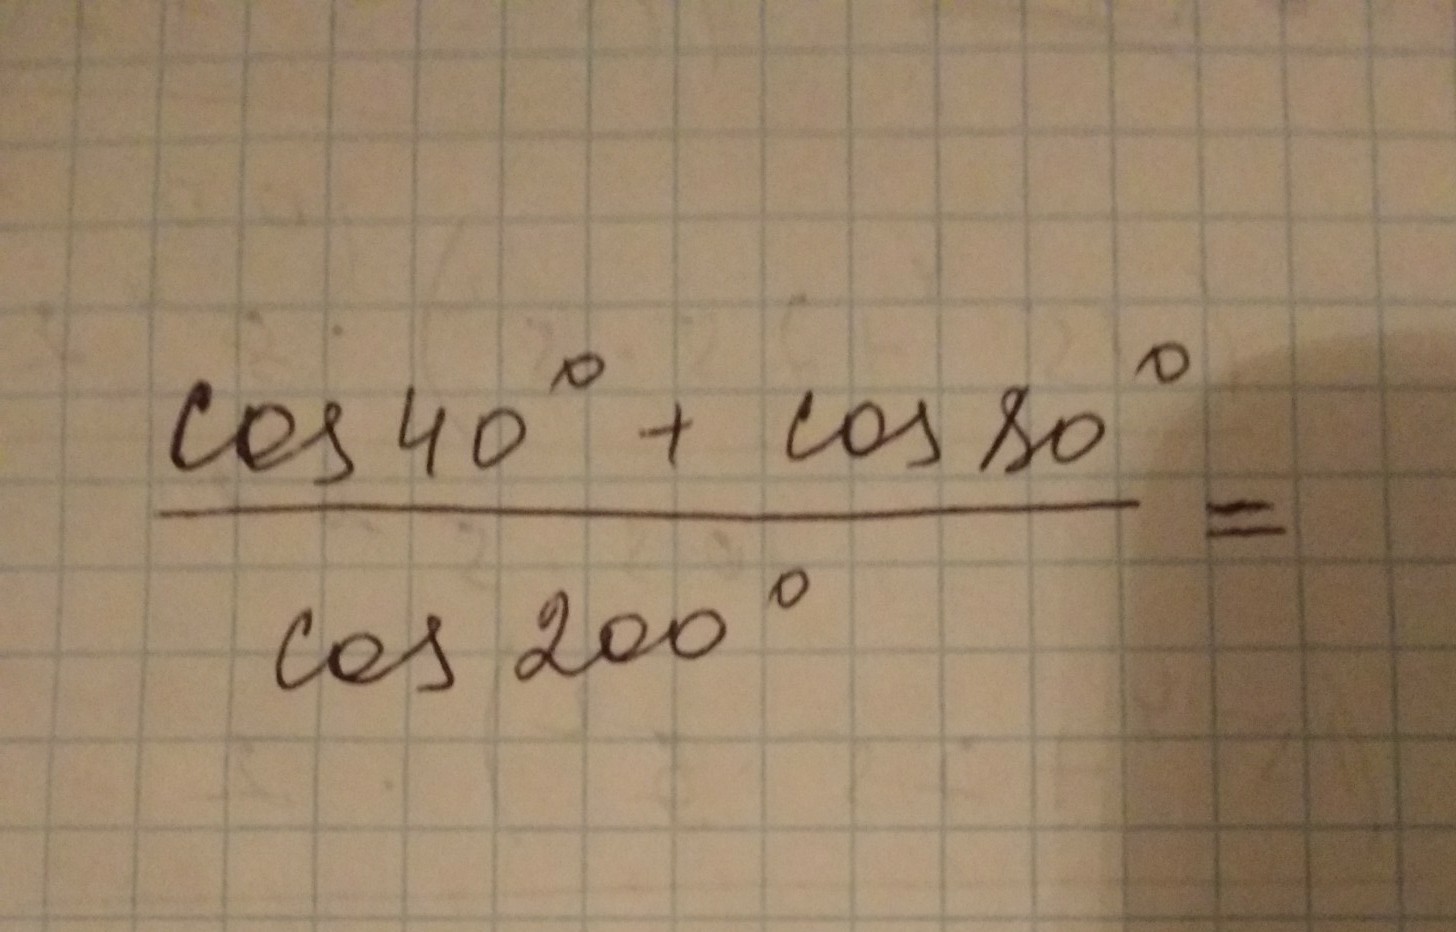 cos 40° + cos 80° =
cos 200°